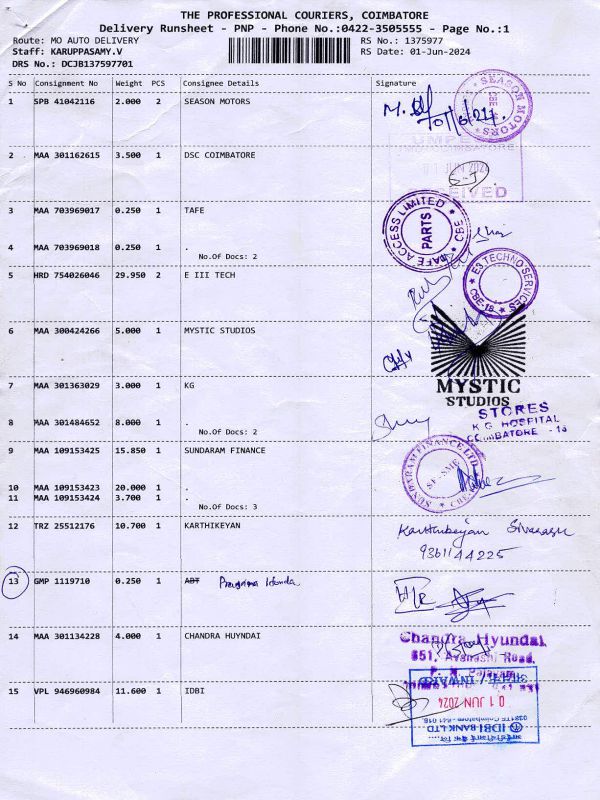 THE PROFESSIONAL COURIERS, COIMBATORE
Delivery Runsheet - PNP - Phone No.:0422-3505555 - Page No.:1
Route: MO AUTO DELIVERY RS No.: 1375977
Staff: KARUPPASAMY.V RS Date: 01-Jun-2024
DRS No.: DCJB137597701
S No Consignment No Weight PCS Consignee Details Signature
1 SPB 41042116 2.000 2 SEASON MOTORS
SEASON MOTORS CBE
2 MAA 301162615 3.500 1 DSC COIMBATORE
3 MAA 703969017 0.250 1 TAFE
TAFE ACCESS LIMITED PARTS CBE
4 MAA 703969018 0.250 1 .
No.Of Docs: 2
5 HRD 754026046 29.950 2 E III TECH
E3 TECHNO SERVICES CBE-18
6 MAA 300424266 5.000 1 MYSTIC STUDIOS
MYSTIC
STUDIOS
7 MAA 301363029 3.000 1 KG
STORES
K G HOSPITAL
COIMBATORE - 18
8 MAA 301484652 8.000 1 .
No.Of Docs: 2
9 MAA 109153425 15.850 1 SUNDARAM FINANCE
SUNDARAM FINANCE LTD CBE
10 MAA 109153423 20.000 1 .
11 MAA 109153424 3.700 1 .
No.Of Docs: 3
12 TRZ 25512176 10.700 1 KARTHIKEYAN
9361144225
13 GMP 1119710 0.250 1 ABT
14 MAA 301134228 4.000 1 CHANDRA HUYNDAI
Chandra Hyundai
651, Avanashi Road,
15 VPL 946960984 11.600 1 IDBI
INWARD
01 JUN 2024
IDBI BANK LTD